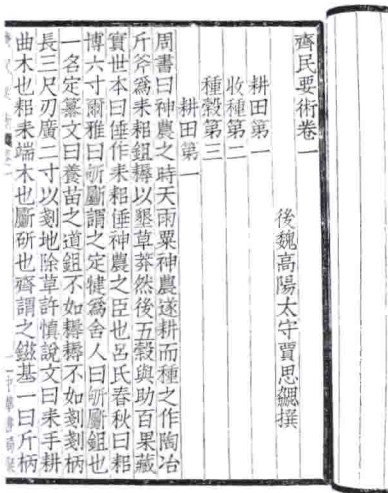 齊民要術卷一
後魏高陽太守賈思勰撰
耕田第一
收種第二
種穀第三
耕田第一
周書曰神農之時天雨粟神農遂耕而種之作陶冶
斤斧爲耒耜鉏耨以墾草莽然後五穀與助百果藏
實世本曰倕作耒耜倕神農之臣也呂氏春秋曰耜
博六寸爾雅曰斪斸謂之定犍爲舍人曰斪斸鉏也
一名定纂文曰養苗之道鉏不如耨耨不如剗剗柄
長三尺刃廣二寸以剗地除草許慎說文曰耒手耕
曲木也耜耒端木也斸斫也齊謂之鎡基一曰斤柄